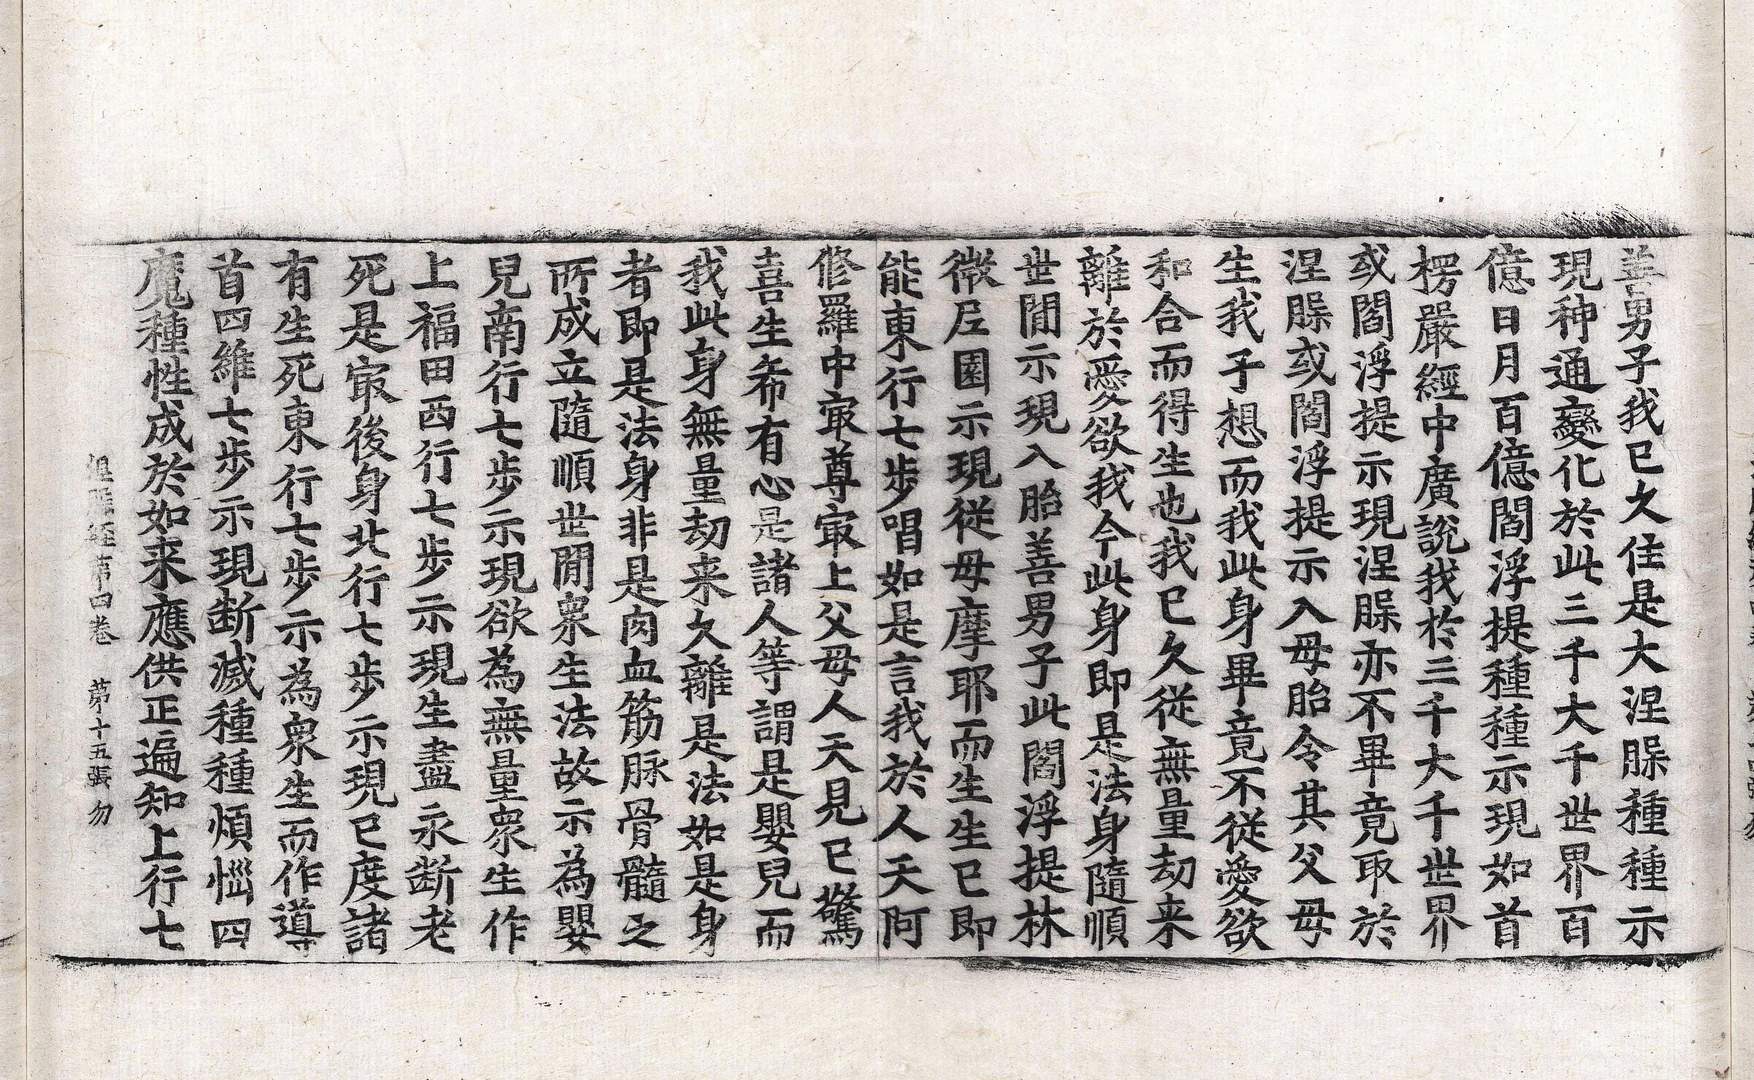 善男子我已久住是大涅槃種種示
現神通變化於此三千大千世界百
億日月百億閻浮提種種示現如首
楞嚴經中廣說我於三千大千世界
或閻浮提示現涅槃亦不畢竟取於
涅槃或閻浮提示入母胎令其父母
生我子想而我此身畢竟不從愛欲
和合而得生也我已久從無量劫来
離於愛欲我今此身即是法身隨順
世間示現入胎善男子此閻浮提林
微尼園示現從母摩耶而生生已即
能東行七步唱如是言我於人天阿
修羅中㝡尊㝡上父母人天見已驚
喜生希有心是諸人等謂是嬰兒而
我此身無量劫来久離是法如是身
者即是法身非是肉血筋脉骨髓之
所成立隨順世間衆生法故示為嬰
兒南行七步示現欲為無量衆生作
上福田西行七步示現生盡永断老
死是㝡後身北行七步示現已度諸
有生死東行七步示為衆生而作導
首四維七步示現断滅種種煩惱四
魔種性成於如来應供正遍知上行七
涅槃經第四卷 第十五張 勿